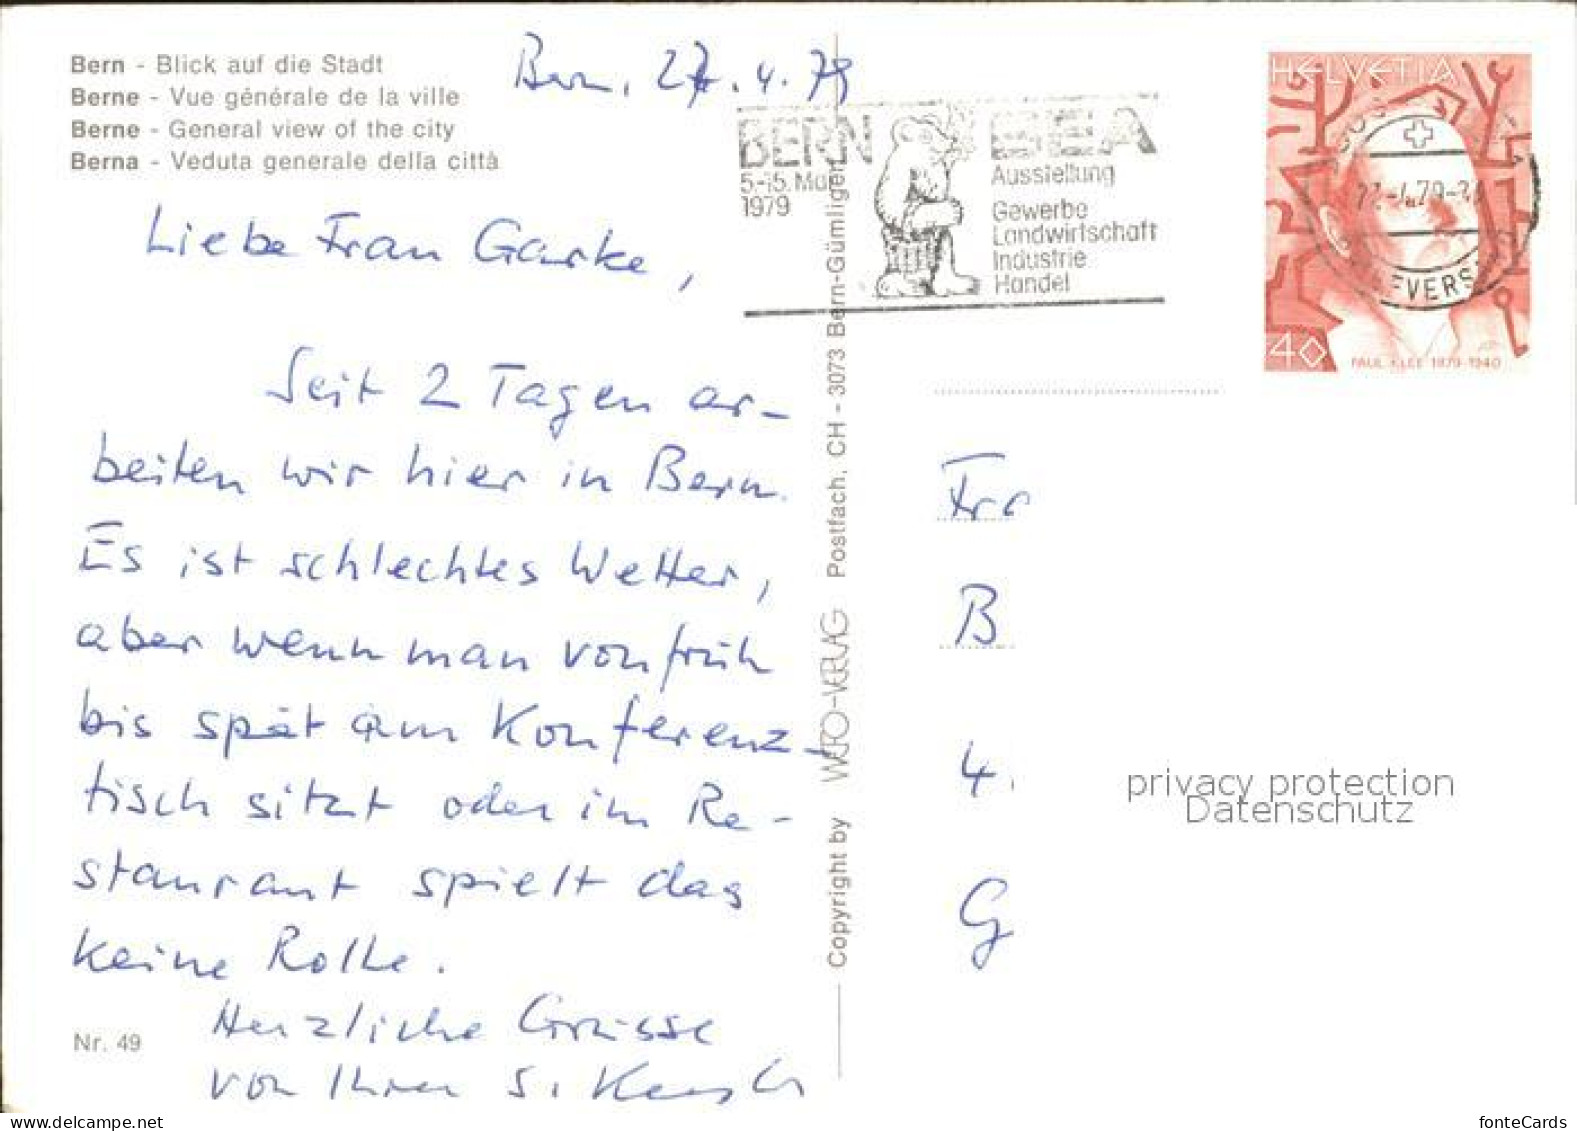 Bern - Blick auf die Stadt
Berne - Vue générale de la ville
Berne - General view of the city
Berna - Veduta generale della città
Bern, 27.4.79
Liebe Frau Garke,
Seit 2 Tagen ar-
beiten wir hier in Bern.
Es ist schlechtes Wetter,
aber wenn man von früh
bis spät am Konferenz-
tisch sitzt oder im Re-
staurant spielt das
keine Rolle.
Herzliche Grüsse
von Ihrem S.
Nr. 49
Copyright by WERO-VERLAG Postfach, CH - 3073 Bern-Gümligen
BERN
5-15. Mai
1979
BEA
Ausstellung
Gewerbe
Landwirtschaft
Industrie
Handel
HELVETIA
40
PAUL KLEE 1879-1940
Fra
B
4.
G
privacy protection
Datenschutz
www.delcampe.net
fonteCards